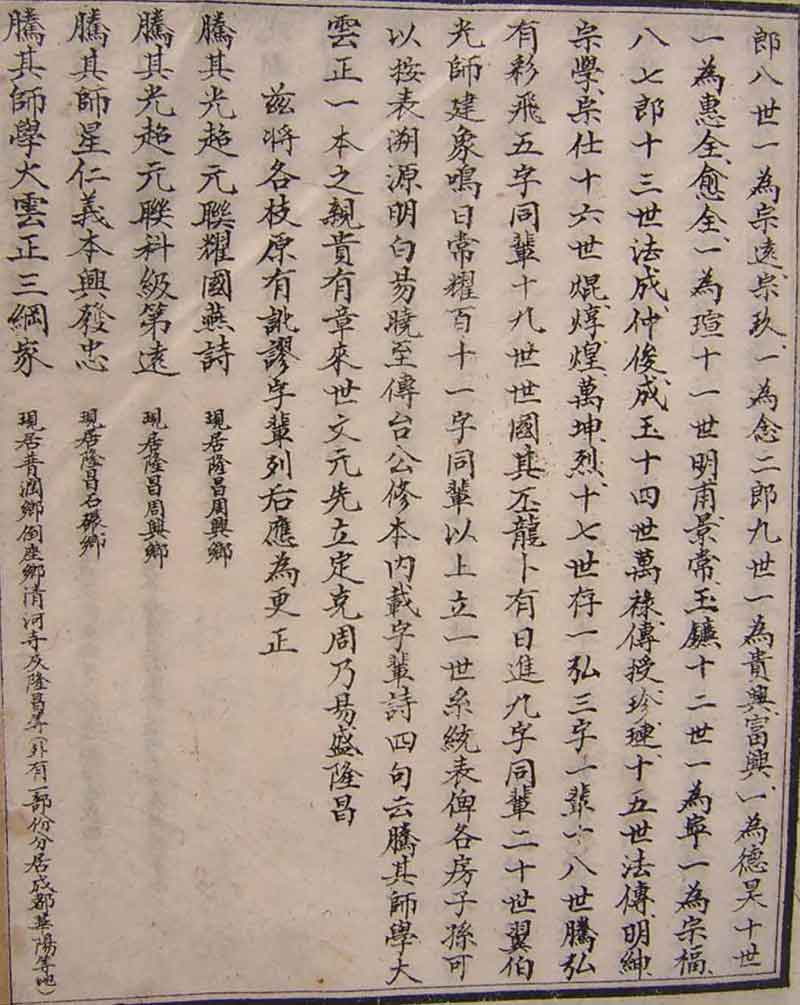 郎八世一為宗遠、宗玖、一為念二郎九世一為貴興、富興、一為德昊十世
一為惠全、愈全、一為瑄十一世明甫景常、玉鑣十二世一為寧一為宗福、
八七郎十三世法成、仲俊成、玉十四世萬祿、傳授、珍璉、十五世法傳、明紳
宗學、宗仕十六世焜、焞、煌、萬坤、烈、十七世存一弘三字一輩十八世騰弘
有彩飛五字同輩十九世世國其丕龍卜有日進九字同輩二十世翼伯
光師建象鳴日常耀百十一字同輩以上立一世系統表俾各房子孫可
以按表溯源明白易曉至傳台公修本內載字輩詩四句云騰其師學大
雲正一本之親貴有章來世文元先立定克周乃易盛隆昌
茲將各枝原有訛謬字輩列后應為更正
騰其光超元聯耀國燕詩 現居隆昌周興鄉
騰其光超元聯科級第遠 現居隆昌周興鄉
騰其師星仁義本興發忠 現居隆昌石碾鄉
騰其師學大雲正三綱家 現居普潤鄉倒座鄉清河寺及隆昌等（外有一部份分居成都華陽等地）